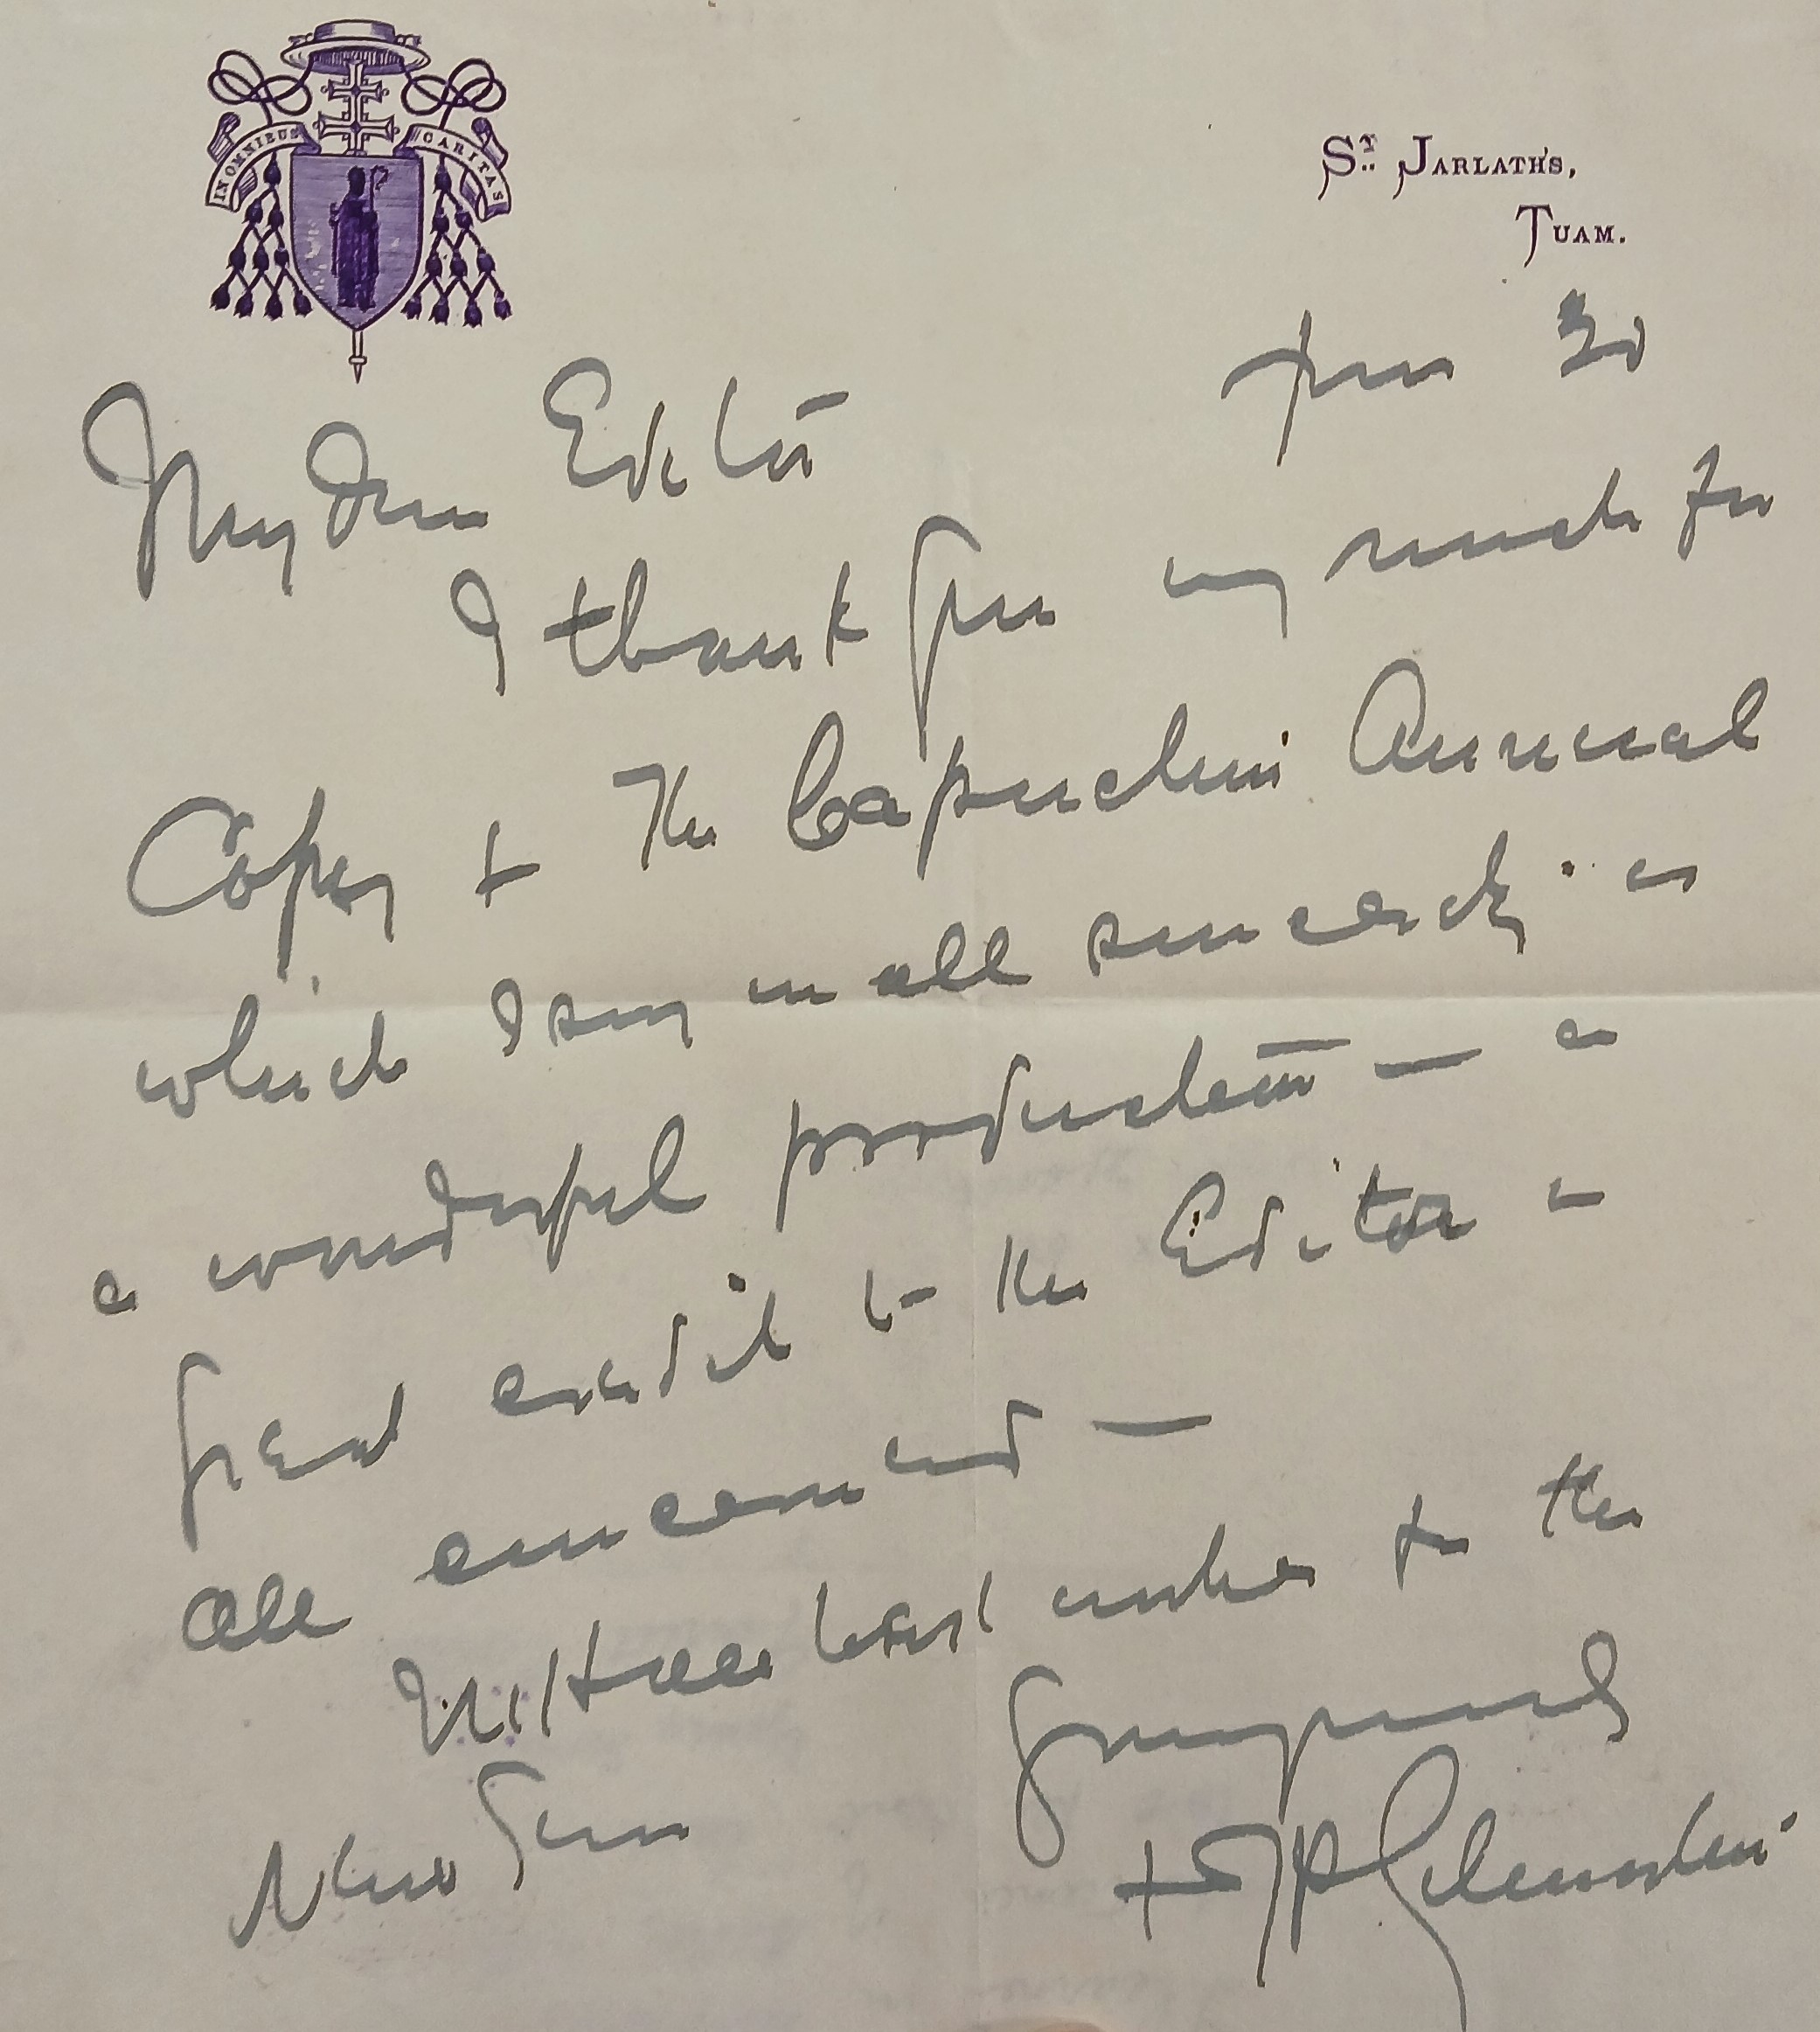 IN OMNIBUS CARITAS
St. Jarlath's,
Tuam.
Jan 30
My dear Editor
I thank you very much for
Copy of The Capuchin Annual
which I say in all sincerity is
a wonderful production — a
great credit to the Editor &
all concerned —
With all best wishes for the
New Year
Yours faithfully
+ T P Gilmartin